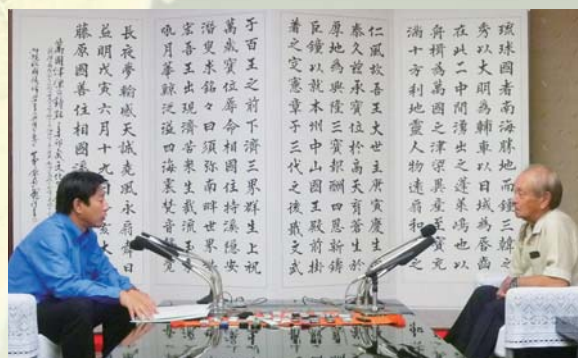 琉球國者南海勝地而鍾三韓之
秀以大明為輔車以日域為脣齒
在此二中間湧出之蓬萊嶋也以
舟楫為萬國之津梁異産至寶充
滿十方刹地靈人物遠扇和之
仁風故吾王大世主庚寅慶生
泰久茲承寶位於高天育蒼生於
厚地為興隆三寶報酬四恩新鑄
巨鐘以就本州中山國王殿前掛
著之定憲章于三代之後戢文武
于百王之前下濟三界群生上祝
萬歳寶位辱命相國住持溪隠安
潜叟求銘々曰須弥南畔世界洪
宏吾王出現済苦衆生截流玉象
吼月華鯨泛溢四海震梵音聲覺
長夜夢輸感天誠堯風永扇舜日
益明戊寅六月十九日亥大
藤原國善住相國溪
萬國津梁